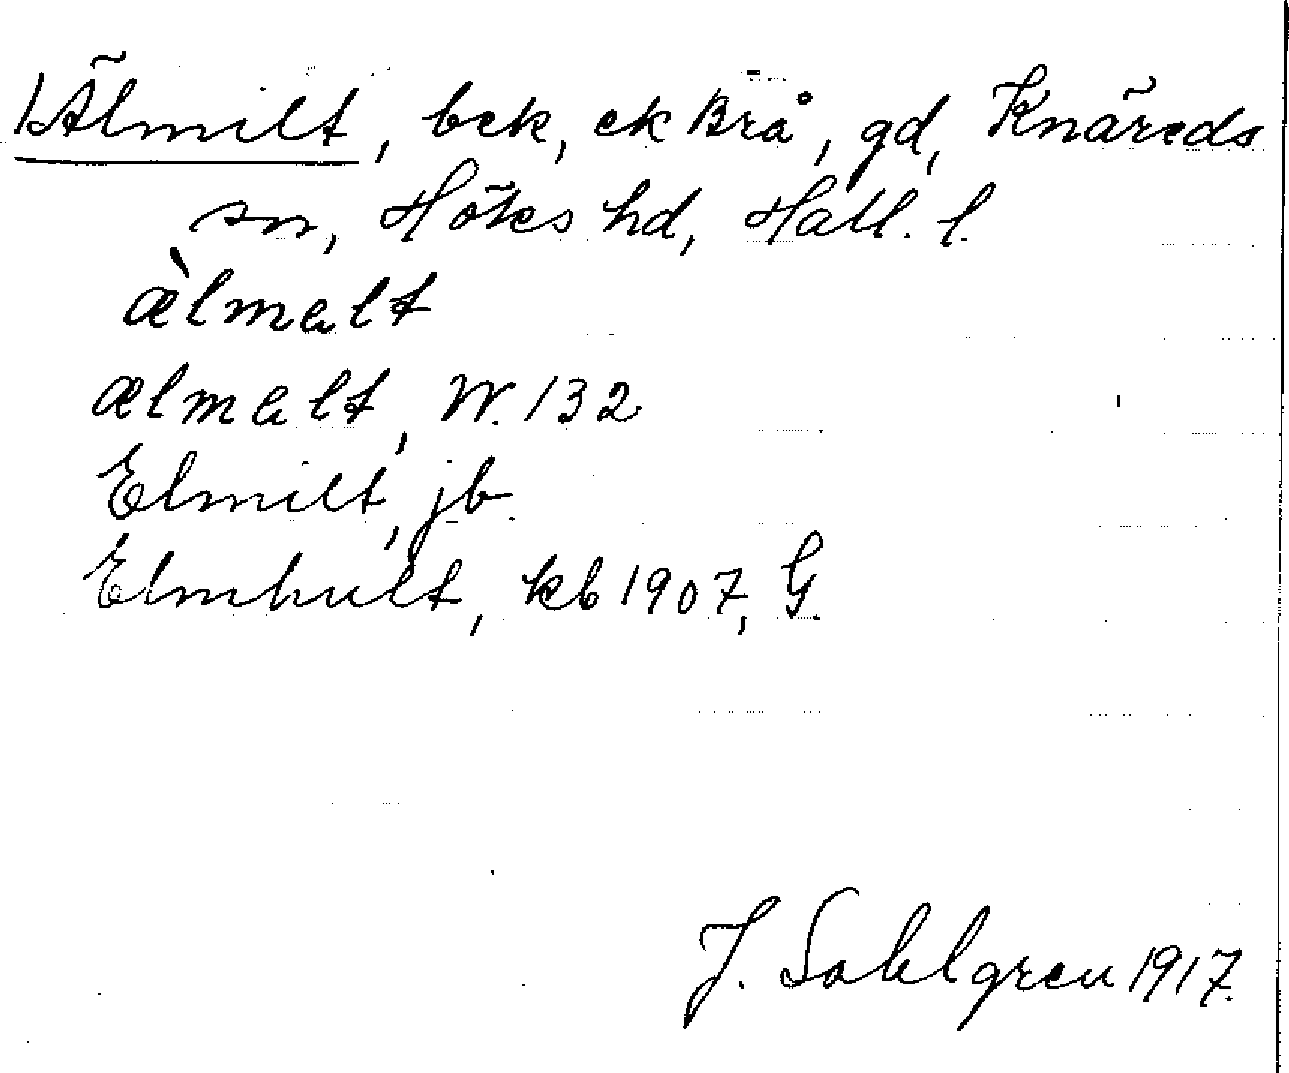 1 Älmilt, bek, ek Brå, gd, Knäreds
sn, Höks hd, Hall. l.
æ̀lmalt
ælmalt, W. 132
Elmilt, jb.
Elmhult, kb 1907, G.
J. Sahlgren 1917.